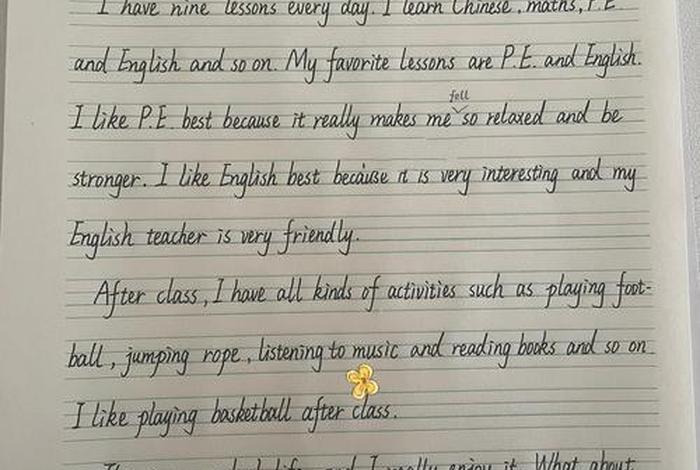 I have nine lessons every day. I learn Chinese, maths, P.E.
and English and so on. My favorite lessons are P.E. and English.
fell
I like P.E. best because it really makes me so relaxed and be
stronger. I like English best because it is very interesting and my
English teacher is very friendly.
After class, I have all kinds of activities such as playing foot-
ball, jumping rope, listening to music and reading books and so on
I like playing basketball after class.
life and I really enjoy it. What about